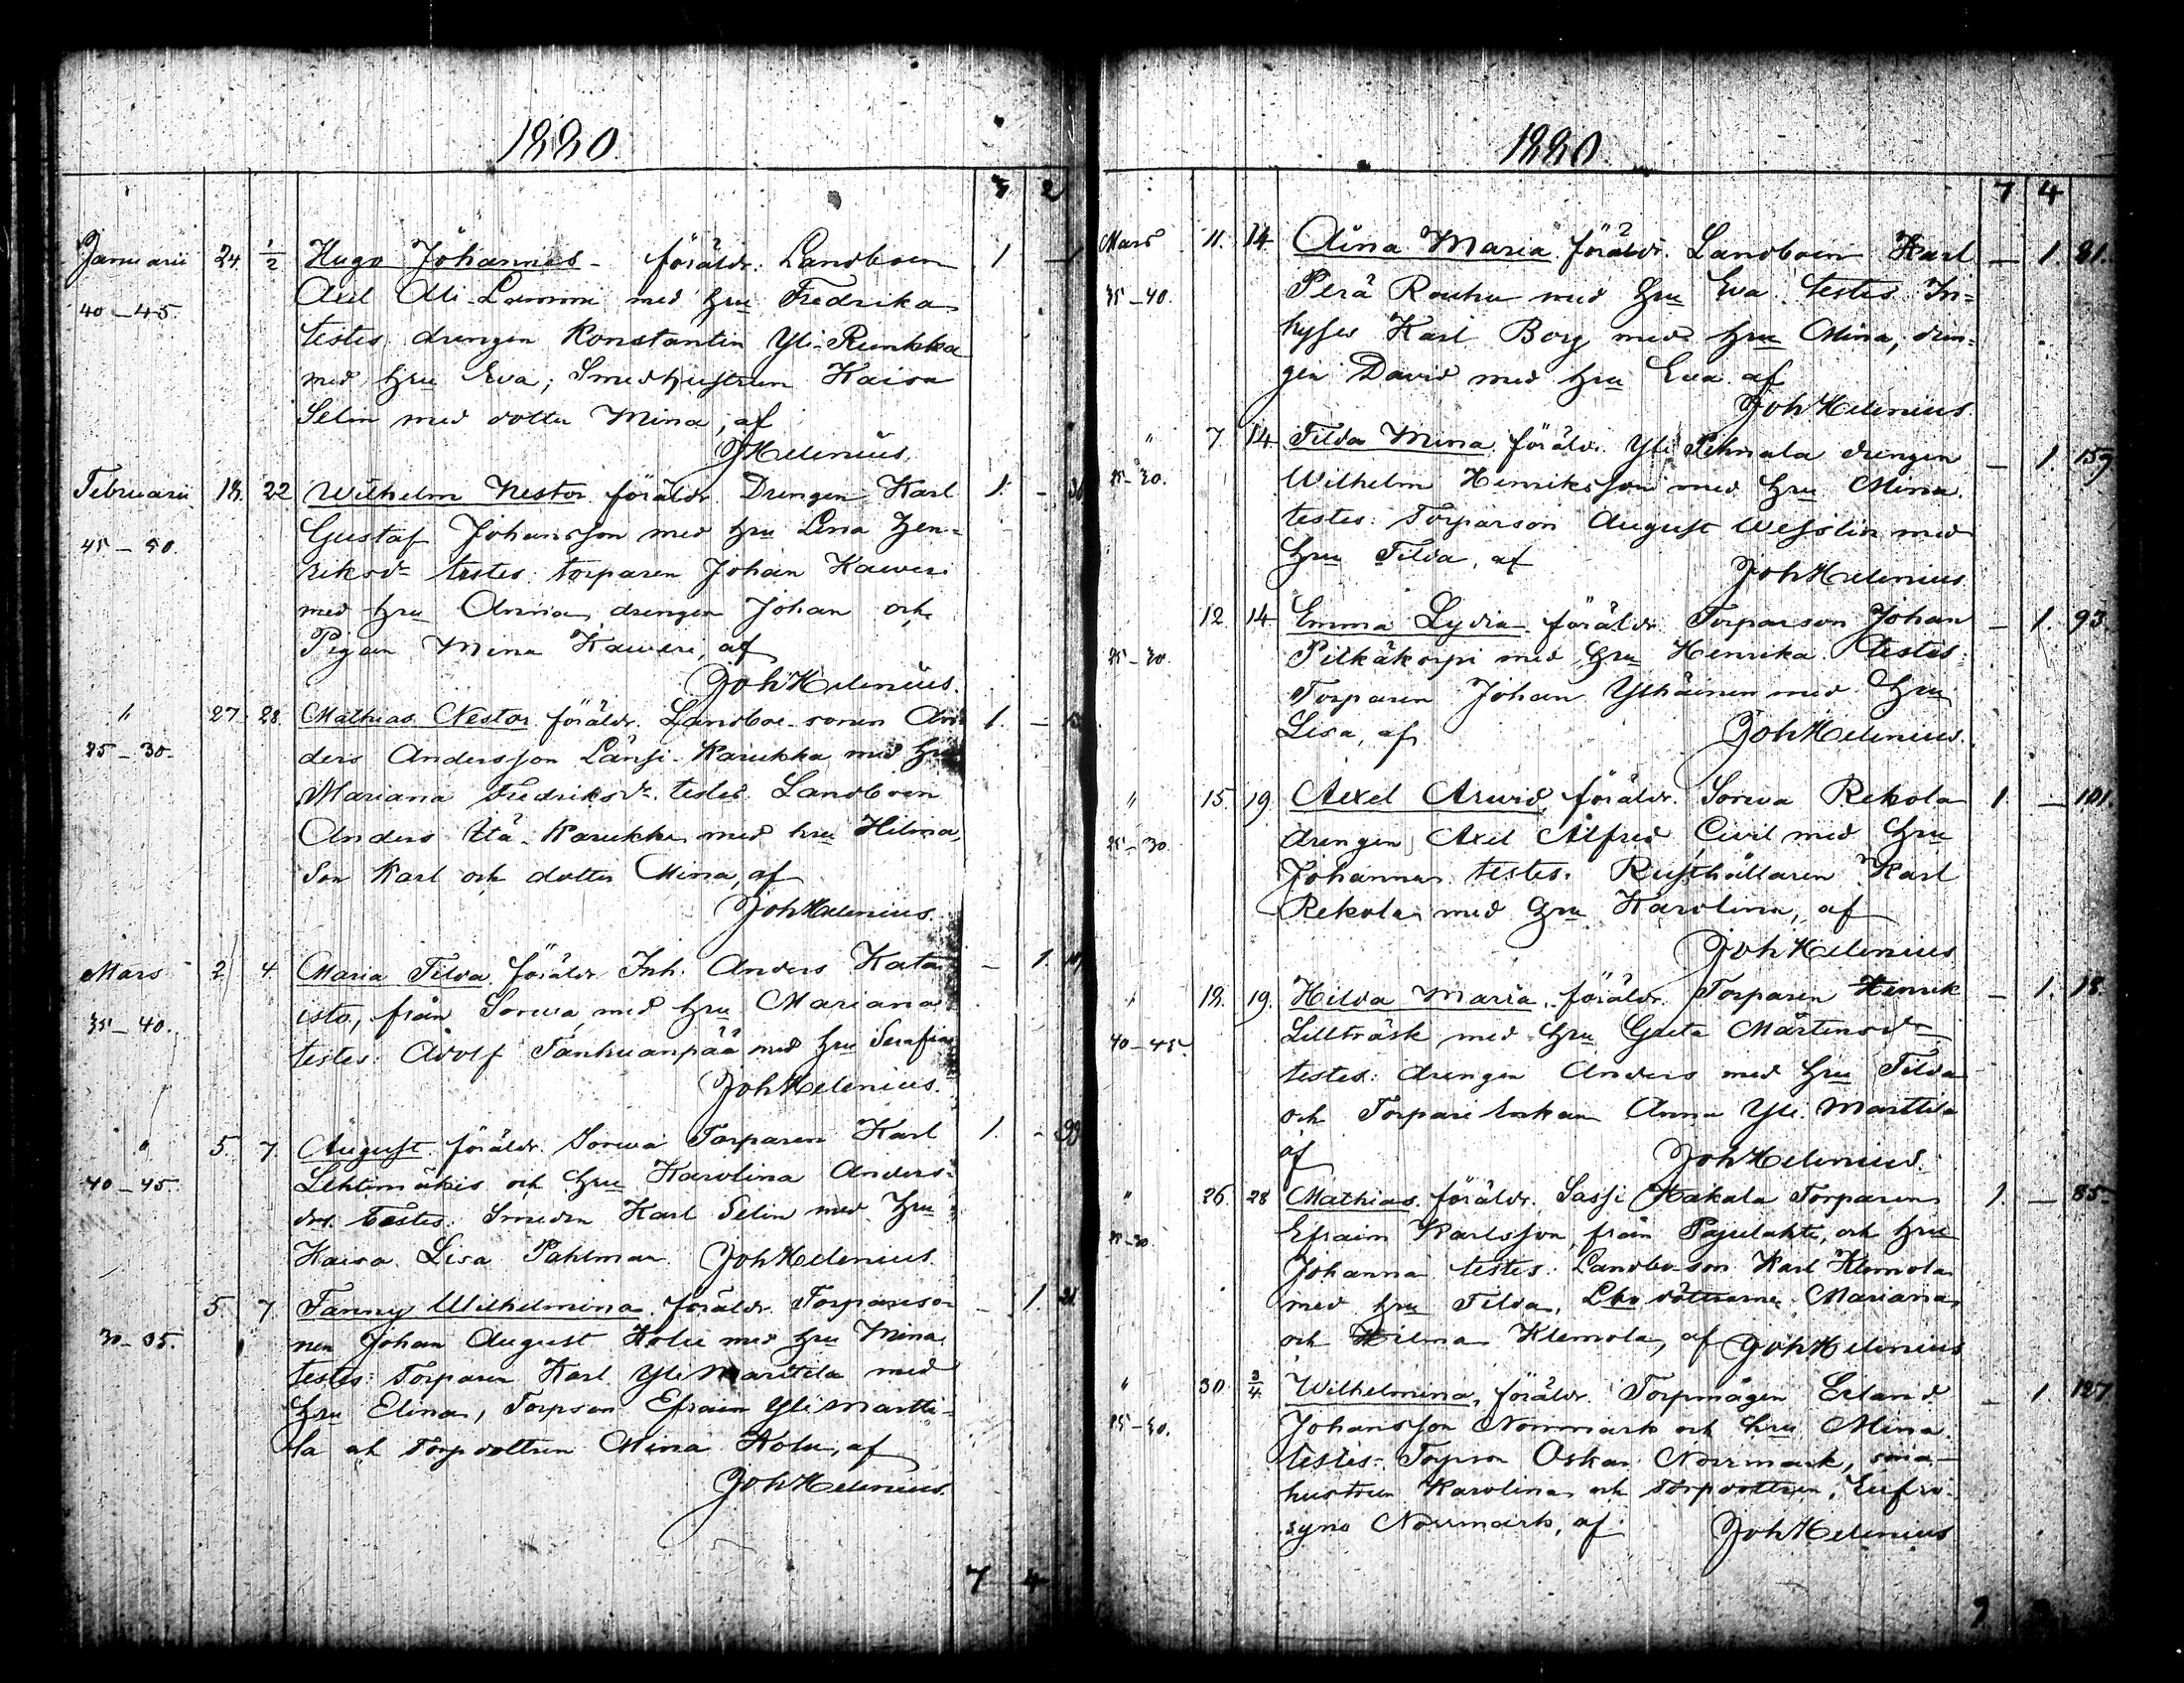 1880
3 2
Januarii 24 1/2 Hugo Johannes - föräldr. Landboen 1 — 1
40—45. Axel Ali-Lammi med hru Fredrika
testes drengen Konstantin Yli-Runkka
med hru Eva; Smedhustrun Kaisa
Selin med dotter Mina, af
JHelenius.
Februarii 18. 22 Wilhelm Nestor föräldr. Drengen Karl 1. -
45—50. Gustaf Johansson med hru Lena Hen-
riksdr testes: torparen Johan Kaweri
med hru Anna, drengen Johan och
Pigan Mina Kaweri, af
JohHelenius.
" 27. 28. Mathias Nestor föräldr. Landboe-sonen An- 1. -
25—30. ders Andersson Länsi-Karukka med hru
Mariana Fredriksdr. testes Landboen
Anders Itä-Karukka med hru Hilma,
Son Karl och dotter Mina, af
JohHelenius.
Mars 2 4. Maria Tilda föräldr Inh. Anders Kata- — 1.
35—40. isto, från Sorwa, med hru Mariana
testes: Adolf Tanhuanpää med hru Serafia
JohHelenius.
" 5. 7. August föräldr. Sorwa Torparen Karl 1. -
40—45. Lehtimäkis och hru Karolina Anders-
dr. Testes: Smeden Karl Selin med hru
Kaisa Lisa Pahlman. JohHelenius.
5. 7 Fanny Wilhelmina. föräldr. Torpareso- — 1.
30—35. nen Johan August Kolu med hru Mina
testes: Torparen Karl Yli Marttila med
hru Elina, Torpson Efraim Yli Martti-
la och Torpdottren Mina Kolu, af
JohHelenius.
7 4
1880.
7 4
Mars 11. 14 Aina Maria föräldr. Landboen Karl — 1. 81.
35—40. Perä Rouhu med hru Eva. testes: In-
hyses Karl Borg med hru Mina, dren-
gen David med hru Eva af
JohHelenius.
" 7. 14 Tilda Mina föräldr. Yli Pihnala drengen — 1. 159
25—30. Wilhelm Henriksson med hru Mina.
testes: Torparson August Wesslin med
hru Tilda, af
JohHelenius.
12 14 Emma Lydia. föräldr. Torparson Johan — 1. 93.
25—30. Pitkäkorpi med hru Henrika. testes:
Torparen Johan Ylhäinen med hru
Lisa, af
JohHelenius.
" 15. 19. Axel Arwid, föräldr. Sorwa Rekola 1. — 101.
25—30. drengen Axel Alfred Civil med hru
Johanna. testes: Rusthållaren Karl
Rekola med hru Karolina, af
JohHelenius
" 18. 19. Hilda Maria. föräldr. Torparen Henrik — 1. 18.
40—45. Lillträsk med hru Greta Mårtensdr
testes: drengen Anders med hru Tilda
och Torpare Enkan Anna Yli Marttila
af
JohHelenius.
" 26. 28 Mathias. föräldr. Sassi Hakala Torparen 1. — 85.
25—30. Efraim Karlsson, från Pajulahti, och hru
Johanna testes: Landbo-son Karl Klemola
med hru Tilda, Lbo döttrarne Mariana
och Hilma Klemola, af JohHelenius
" 30. 3/4. Wilhelmina, föräldr. Torpmågen Erland — 1. 127
25—30. Johansson Norrmark och hru Mina.
testes: Torpson Oskar Norrmark,
hustrun Karolina och Torpdottren, Eufro-
syne Norrmark, af JohHelenius